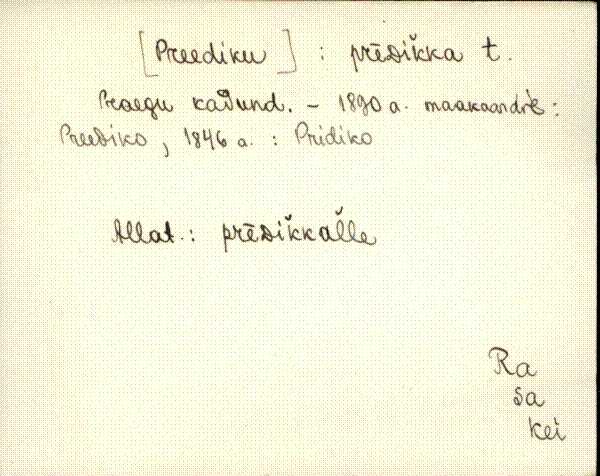 [Preediku] : prēᴅik̆ka t.
Praegu kadund. – 1890 a. maakaardrè:
Preediko, 1846 a. : Pridiko
Allat.: prēᴅik̆kal̆le
Ra
sa
kei